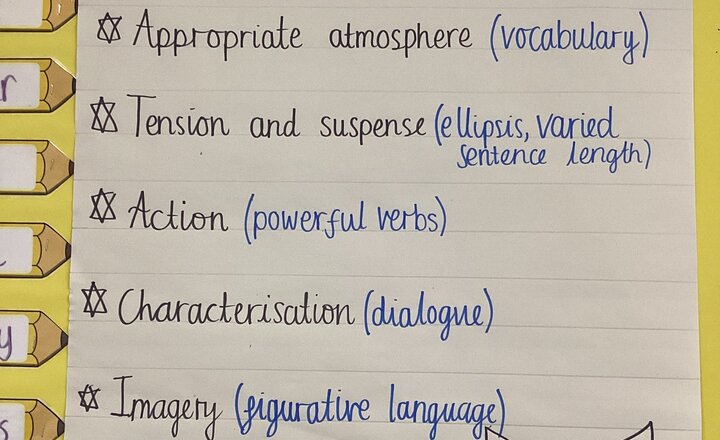 Appropriate atmosphere (vocabulary)
r
Tension and suspense (ellipsis, varied
sentence length)
Action (powerful verbs)
Characterisation (dialogue)
y
Imagery (figurative language)
s